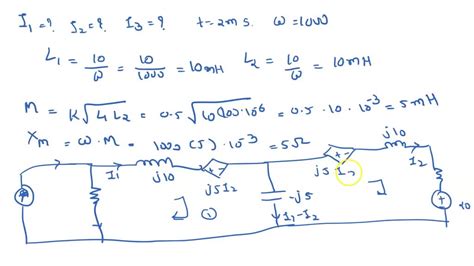 I₁ = ? I₂ = ? I₃ = ? t = 2ms. ω = 1000
L₁ = 10/ω = 10/1000 = 10mH L₂ = 10/ω = 10mH
M = K√L₁L₂ = 0.5√10(10)·10⁻⁶ = 0.5·10·10⁻³ = 5mH
Xm = ω·M = 1000(5)·10⁻³ = 5Ω
I₁ j10 + - j5I₂ -j5 I₁-I₂ + - j5I₁ j10 I₂
①
+